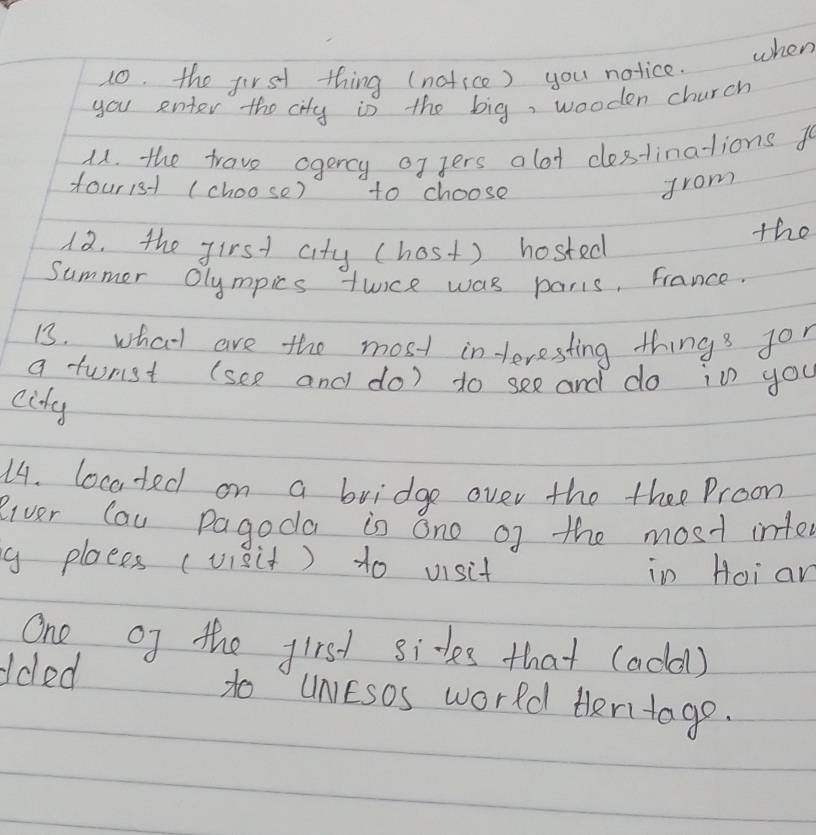 10. the first thing (notice) you notice. when
you enter the city is the big, wooden church
11. the trave agency offers alot destinations fo
tourist (choose) to choose from
12. the first city (host) hosted the
Summer Olympics twice was paris, France.
13. what are the most interesting things for
a twrist (see and do) to see and do in you
city
14. located on a bridge over the thee Proon
River Cau Pagoda is One of the most inter
g places (visit) to visit in Hoi an
One of the first sites that (add)
dded to UNESOS world Heritage.